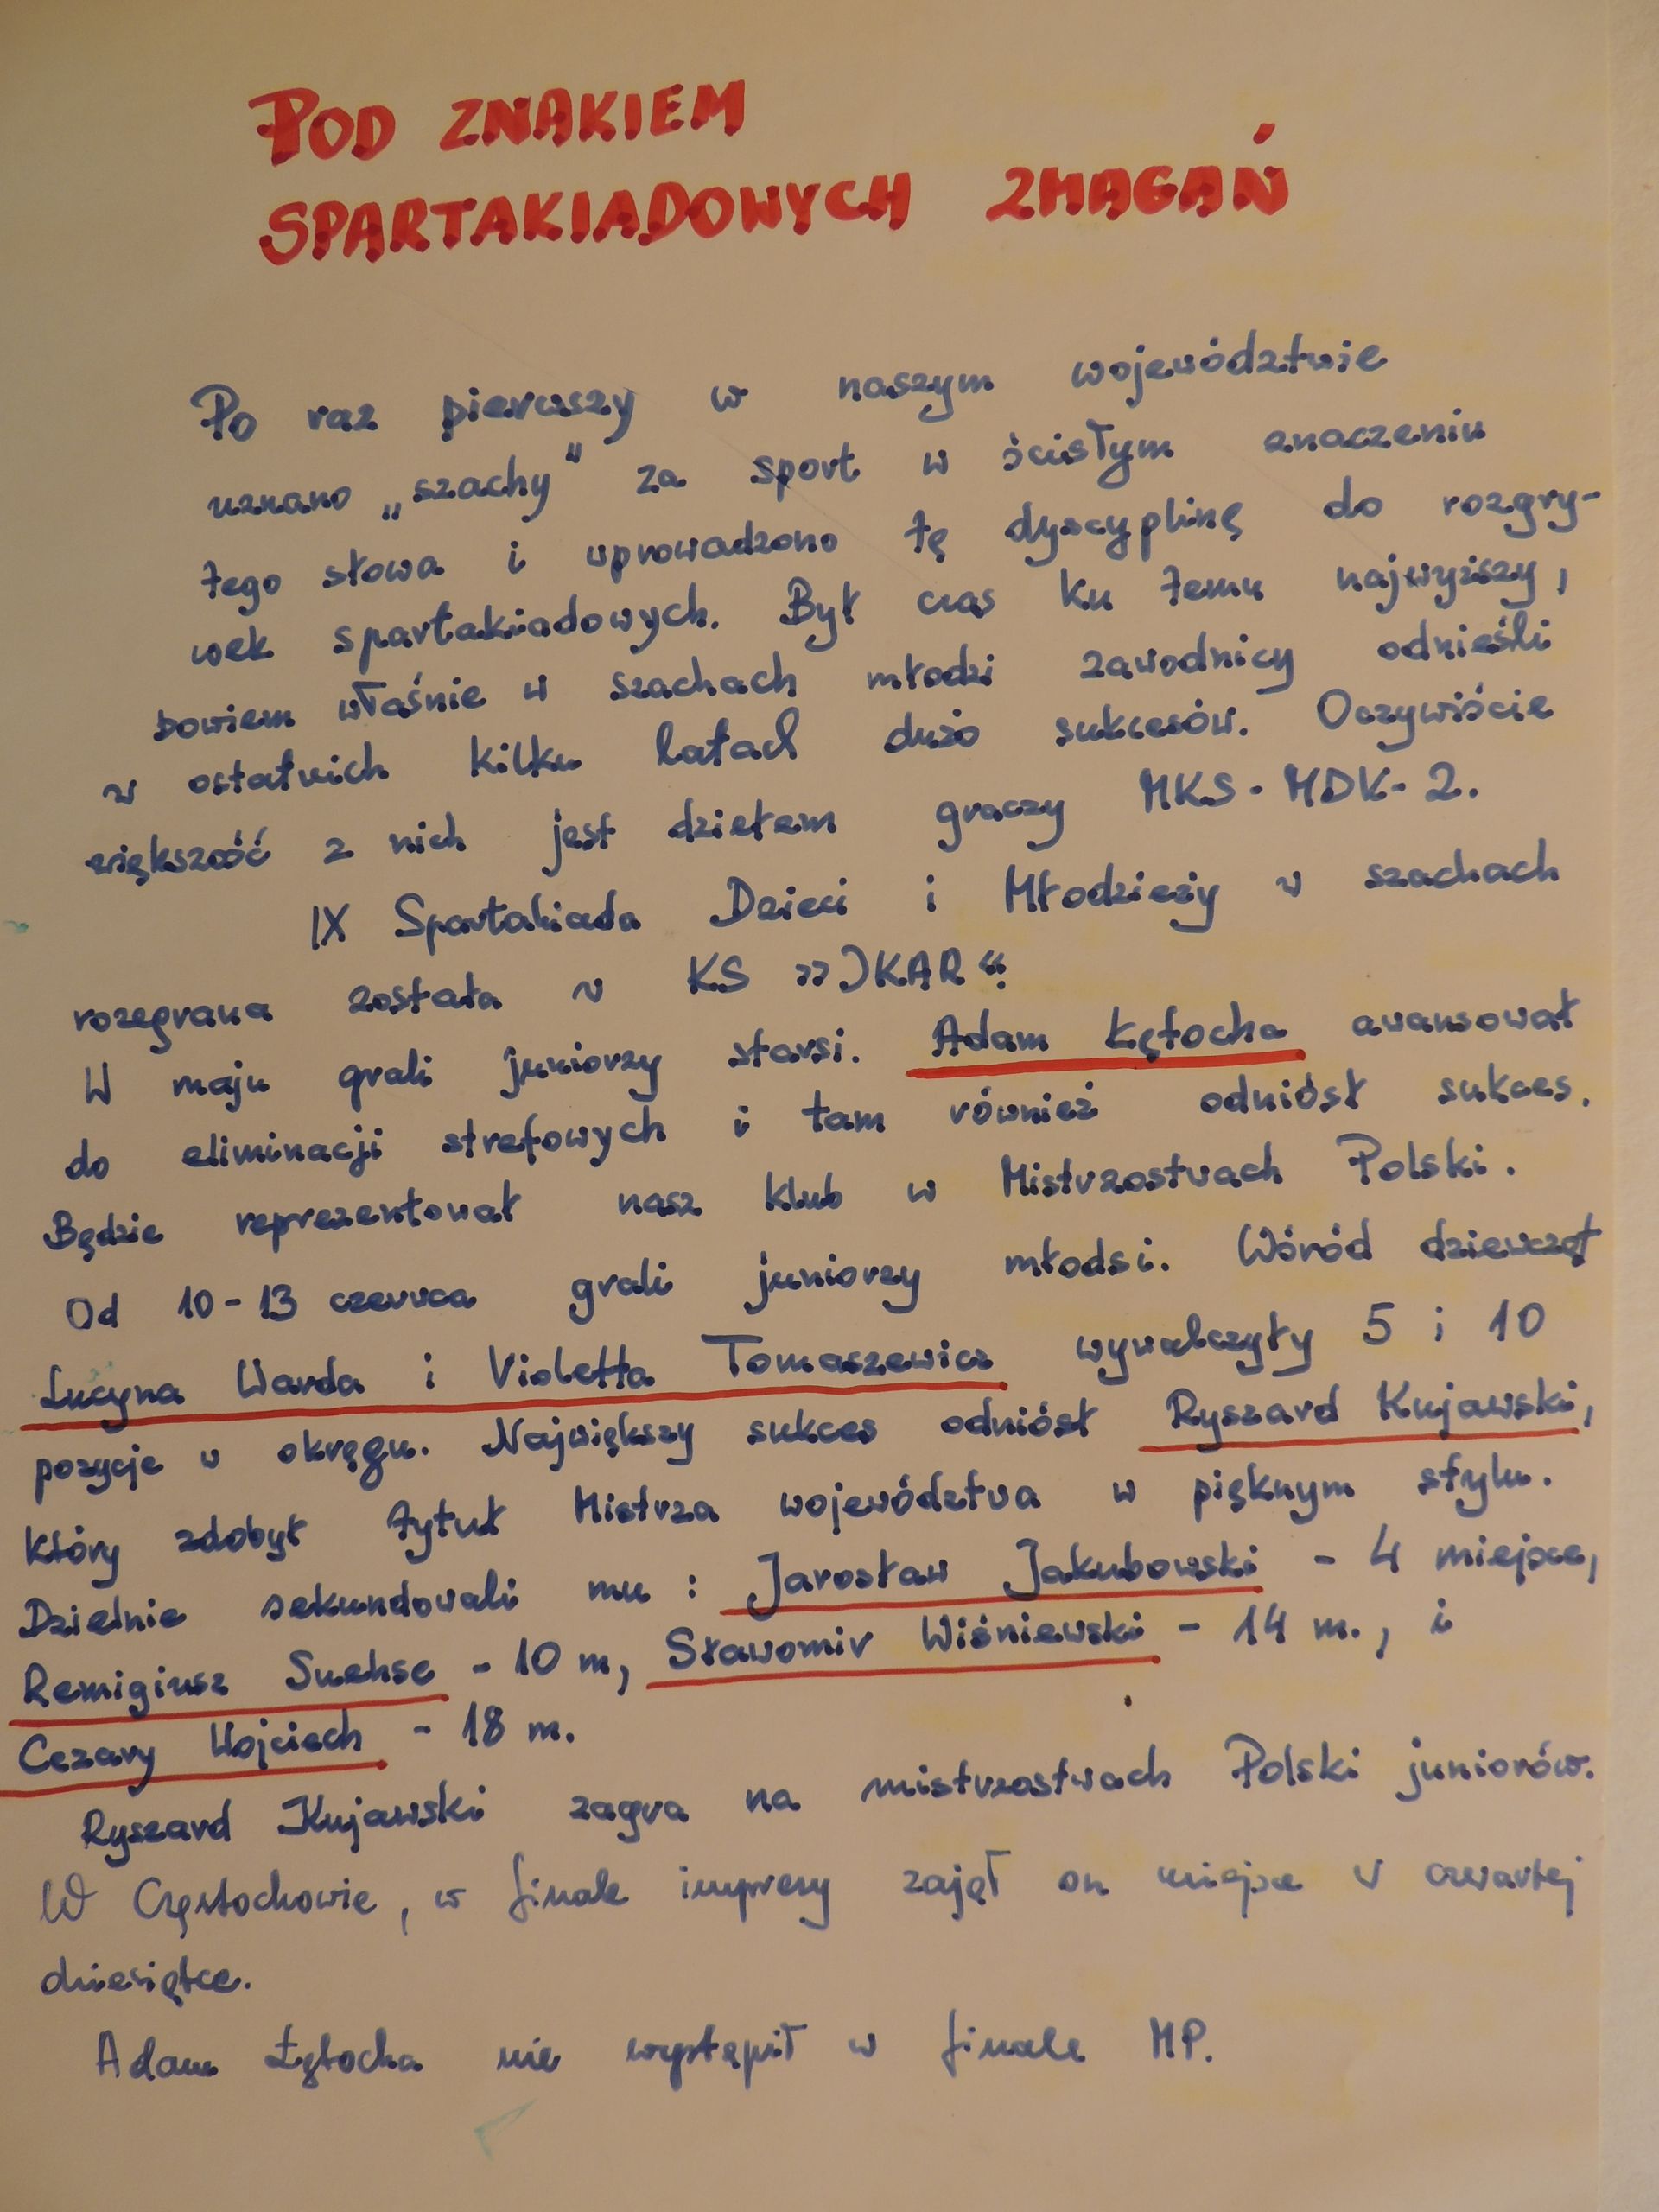 POD ZNAKIEM
SPARTAKIADOWYCH ZMAGAŃ
Po raz pierwszy w naszym województwie
uznano „szachy" za sport w ścisłym znaczeniu
tego słowa i wprowadzono tę dyscyplinę do rozgry-
wek spartakiadowych. Był czas ku temu najwyższy,
bowiem właśnie w szachach młodzi zawodnicy odnieśli
w ostatnich kilku latach dużo sukcesów. Oczywiście
większość z nich jest dziełem graczy MKS-MDK-2.
IX Spartakiada Dzieci i Młodzieży w szachach
rozegrana została w KS „IKAR".
W maju grali juniorzy starsi. Adam Łętocha awansował
do eliminacji strefowych i tam również odniósł sukces.
Będzie reprezentował nasz klub w Mistrzostwach Polski.
Od 10-13 czerwca grali juniorzy młodsi. Wśród dziewcząt
Lucyna Warda i Violetta Tomaszewicz wywalczyły 5 i 10
pozycje w okręgu. Największy sukces odniósł Ryszard Kujawski,
który zdobył tytuł Mistrza województwa w pięknym stylu.
Dzielnie sekundowali mu : Jarosław Jakubowski - 4 miejsce,
Remigiusz Suehse - 10 m, Sławomir Wiśniewski - 14 m., i
Cezary Wojciech - 18 m.
Ryszard Kujawski zagra na mistrzostwach Polski juniorów.
W Częstochowie, w finale imprezy zajął on miejsce w czwartej
dziesiątce.
Adam Łętocha nie wystąpił w finale MP.